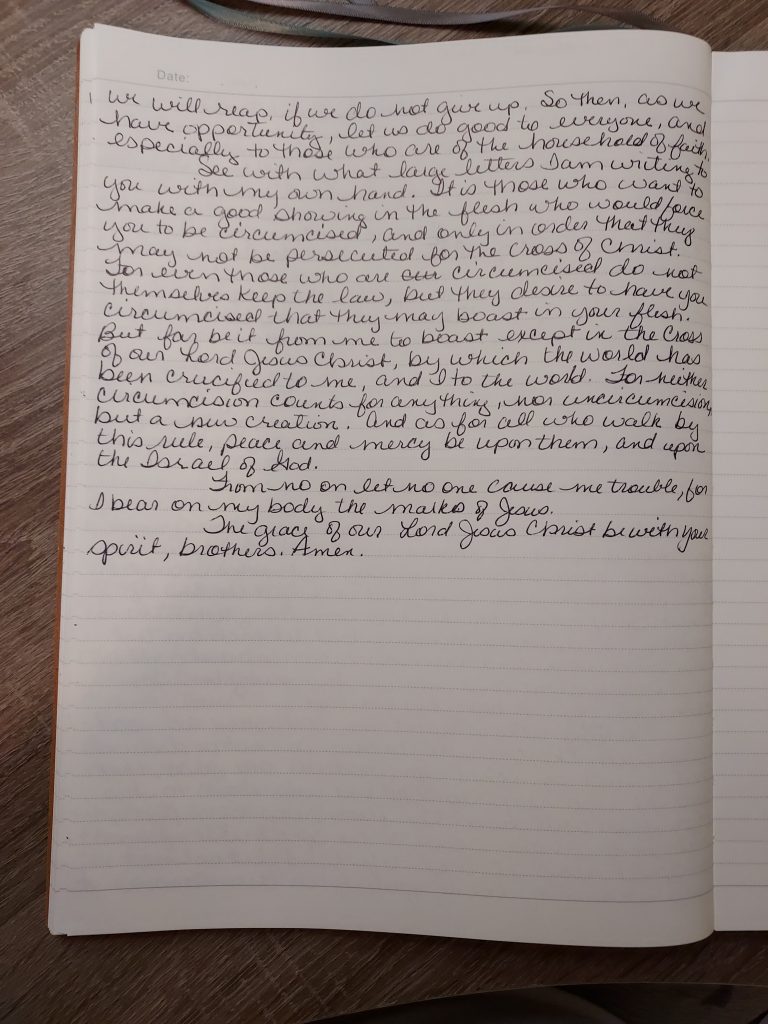 Date:
we will reap, if we do not give up. So then, as we
have opportunity, let us do good to everyone, and
especially to those who are of the household of faith.
See with what large letters I am writing to
you with my own hand. It is those who want to
make a good showing in the flesh who would force
you to be circumcised, and only in order that they
may not be persecuted for the cross of Christ.
For even those who are circumcised do not
themselves keep the law, but they desire to have you
circumcised that they may boast in your flesh.
But far be it from me to boast except in the Cross
of our Lord Jesus Christ, by which the world has
been crucified to me, and I to the world. For neither
circumcision counts for anything, nor uncircumcision,
but a new creation. And as for all who walk by
this rule, peace and mercy be upon them, and upon
the Israel of God.
From no on let no one cause me trouble, for
I bear on my body the marks of Jesus.
The grace of our Lord Jesus Christ be with your
spirit, brothers. Amen.